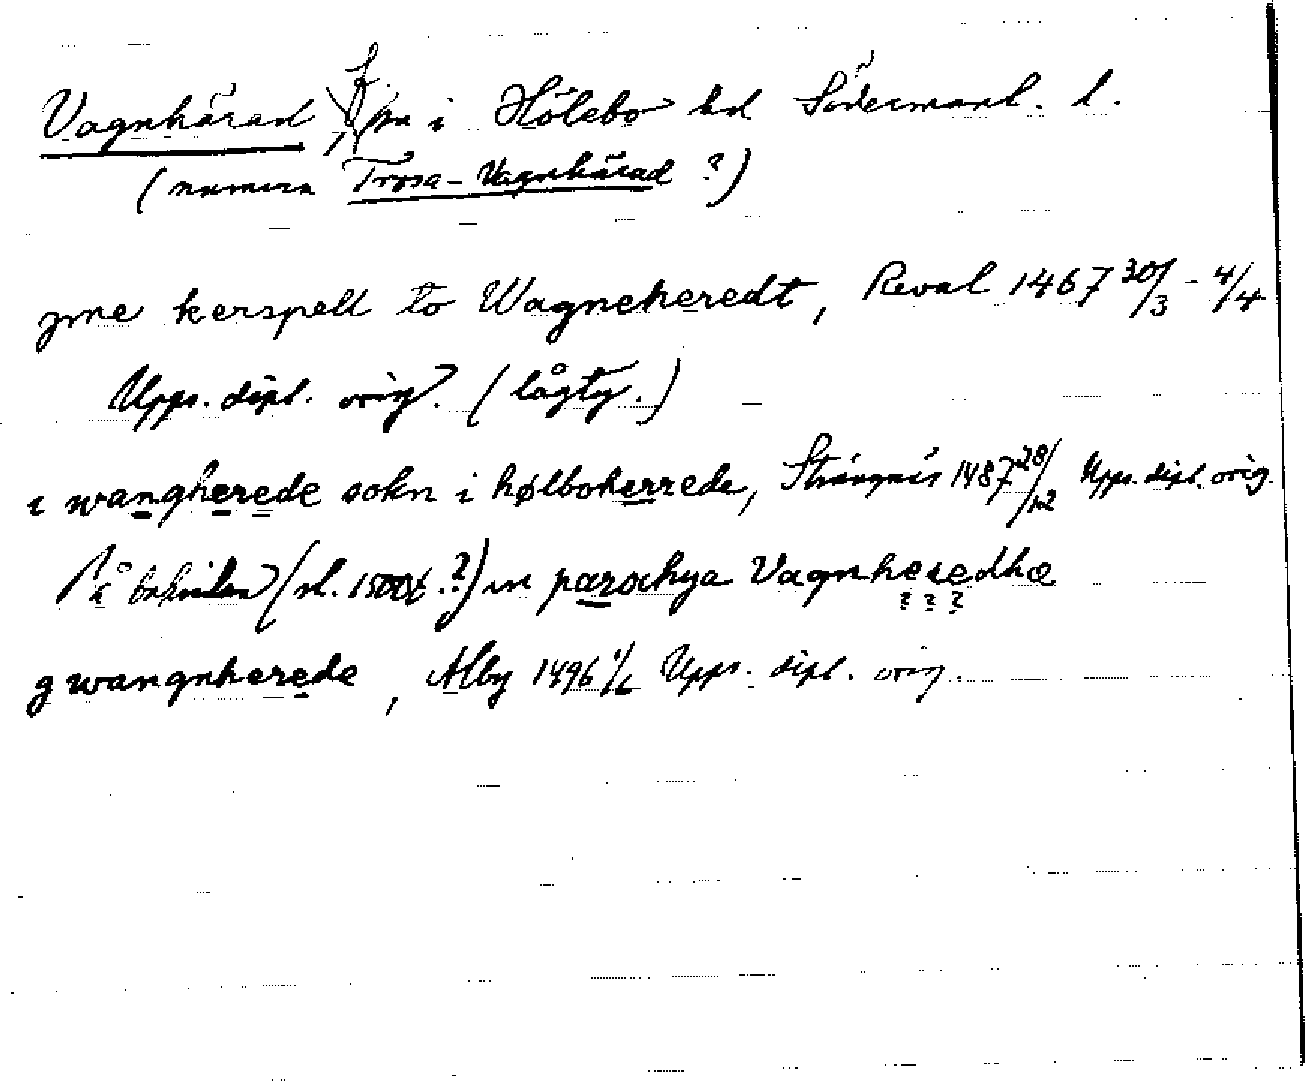 Vagnhärad, sn i Hölebo hd Södermanl. l.
(numera Trosa-Vagnhärad ?)
yme kerspell to Wagneheredt, Reval 1467 30/3 - 4/4
Upps. dipl. orig. (lågty.)
i wangherede sokn i hølboherrede, Strängnäs 1487 28/12 Upps. dipl. orig.
På baksidan (sl. 1500t.?) in parochya Vagnheredhæ
? ? ?
g wangnherede, Alby 1496 1/6 Upps. dipl. orig.